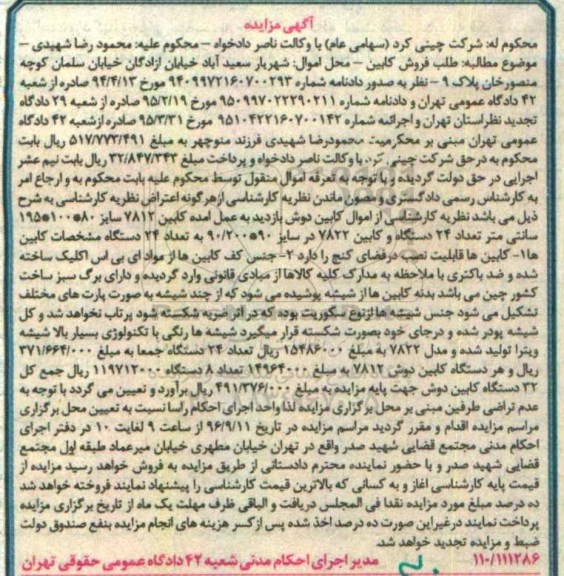 آگهی مزایده
محکوم له: شرکت چینی کرد (سهامی عام) با وکالت ناصر دادخواه – محکوم علیه: محمود رضا شهیدی –
موضوع مطالبه: طلب فروش کابین – محل اموال: شهریار سعید آباد خیابان ازادگان خیابان سلمان کوچه
منصورخان پلاک ۹ – نظر به صدور دادنامه شماره ۹۴۰۹۹۷۲۱۶۰۷۰۰۲۹۳ مورخ ۹۴/۴/۱۳ صادره از شعبه
۴۲ دادگاه عمومی تهران و دادنامه شماره ۹۵۰۹۹۷۰۲۲۲۹۰۲۱۱ مورخ ۹۵/۲/۱۹ صادره از شعبه ۲۹ دادگاه
تجدید نظر استان تهران و اجرائیه شماره ۹۵۱۰۴۲۲۱۶۰۷۰۰۱۴۲ مورخ ۹۵/۳/۳۱ صادره از شعبه ۴۲ دادگاه
عمومی تهران مبنی بر محکومیت محمودرضا شهیدی فرزند منوچهر به مبلغ ۵۱۷/۷۷۳/۴۹۱ ریال بابت
محکوم به در حق شرکت چینی کرد با وکالت ناصر دادخواه و پرداخت مبلغ ۳۲/۸۴۷/۳۴۳ ریال بابت نیم عشر
اجرایی در حق دولت گردیده و با توجه به تعرفه اموال منقول توسط محکوم علیه بابت محکوم به و ارجاع امر
به کارشناس رسمی دادگستری و مصون ماندن نظریه کارشناسی از هرگونه اعتراض نظریه کارشناسی به شرح
ذیل می باشد نظریه کارشناسی از اموال کابین دوش بازدید به عمل امده کابین ۷۸۱۲ سایز ۸۰*۱۰۰*۱۹۵
سانتی متر تعداد ۲۴ دستگاه و کابین ۷۸۲۲ در سایز ۹۰*۹۰/۲۰۰ به تعداد ۲۴ دستگاه مشخصات کابین
ها ۱- کابین ها قابلیت نصب در فضای کنج را دارد ۲- جنس کف کابین ها از مواد ای بی اس اکلیک ساخته
شده و ضد باکتری با ملاحظه به مدارک کلیه کالاها از مبادی قانونی وارد گردیده و دارای برگ سبز ساخت
کشور چین می باشد بدنه کابین ها از شیشه پوشیده می شود که از چند شیشه به صورت پارت های مختلف
تشکیل می شود جنس شیشه ها از نوع سکوریت بوده که در اثر ضربه شکسته شود پرتاب نخواهد شد و کل
شیشه پودر شده و درجای خود بصورت شکسته قرار میگیرد شیشه ها رنگی با تکنولوژی بسیار بالا شیشه
ویترا تولید شده و مدل ۷۸۲۲ به مبلغ ۱۵۴۸۶۰۰۰ ریال تعداد ۲۴ دستگاه جمعا به مبلغ ۳۷۱/۶۶۴/۰۰۰
ریال و هر دستگاه کابین دوش ۷۸۱۲ به مبلغ ۱۴۹۶۴۰۰۰ تعداد ۸ دستگاه ۱۱۹۷۱۲۰۰۰ ریال جمع کل
۳۲ دستگاه کابین دوش جهت پایه مزایده به مبلغ ۴۹۱/۳۷۶/۰۰۰ ریال برآورد و تعیین می گردد با توجه به
عدم تراضی طرفین مبنی بر محل برگزاری مزایده لذا واحد اجرای احکام راسا نسبت به تعیین محل برگزاری
مراسم مزایده اقدام و مقرر گردید مراسم مزایده در تاریخ ۹۶/۹/۱۱ از ساعت ۹ لغایت ۱۰ در دفتر اجرای
احکام مدنی مجتمع قضایی شهید صدر واقع در تهران خیابان مطهری خیابان میرعماد طبقه اول مجتمع
قضایی شهید صدر و با حضور نماینده محترم دادستانی از طریق مزایده به فروش خواهد رسید مزایده از
قیمت پایه کارشناسی اغاز و به کسانی که بالاترین قیمت کارشناسی را پیشنهاد نمایند فروخته خواهد شد
ده درصد مبلغ مورد مزایده نقدا فی المجلس دریافت و الباقی ظرف مهلت یک ماه از تاریخ برگزاری مزایده
پرداخت نمایند در غیر این صورت ده درصد اخذ شده پس از کسر هزینه های انجام مزایده بنفع صندوق دولت
ضبط و مزایده تجدید خواهد شد.
۱۱۰/۱۱۱۲۸۶ مدیر اجرای احکام مدنی شعبه ۴۲ دادگاه عمومی حقوقی تهران